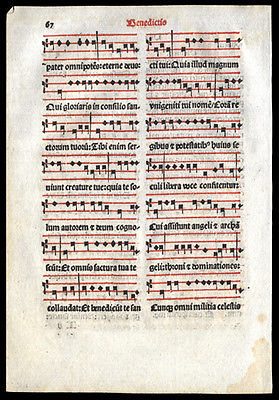 67
Benedictio
pater omnipotēs: eterne deus
Qui gloriaris in consilio san
ctorum tuorū: Tibi enim ser
viunt creature tue: quia te so
lum autorem et deum cogno
scūt: Et omnis factura tua te
collaudat: Et benedicūt te san
cti tui: Quia illud magnum
unigeniti tui nomē: Corā re
gibus et potestatibꝰ huius se
culi libera voce confitentur:
Qui assistunt angeli et archā
geli: throni et dominationes:
Cunqꝫ omni militia celestis